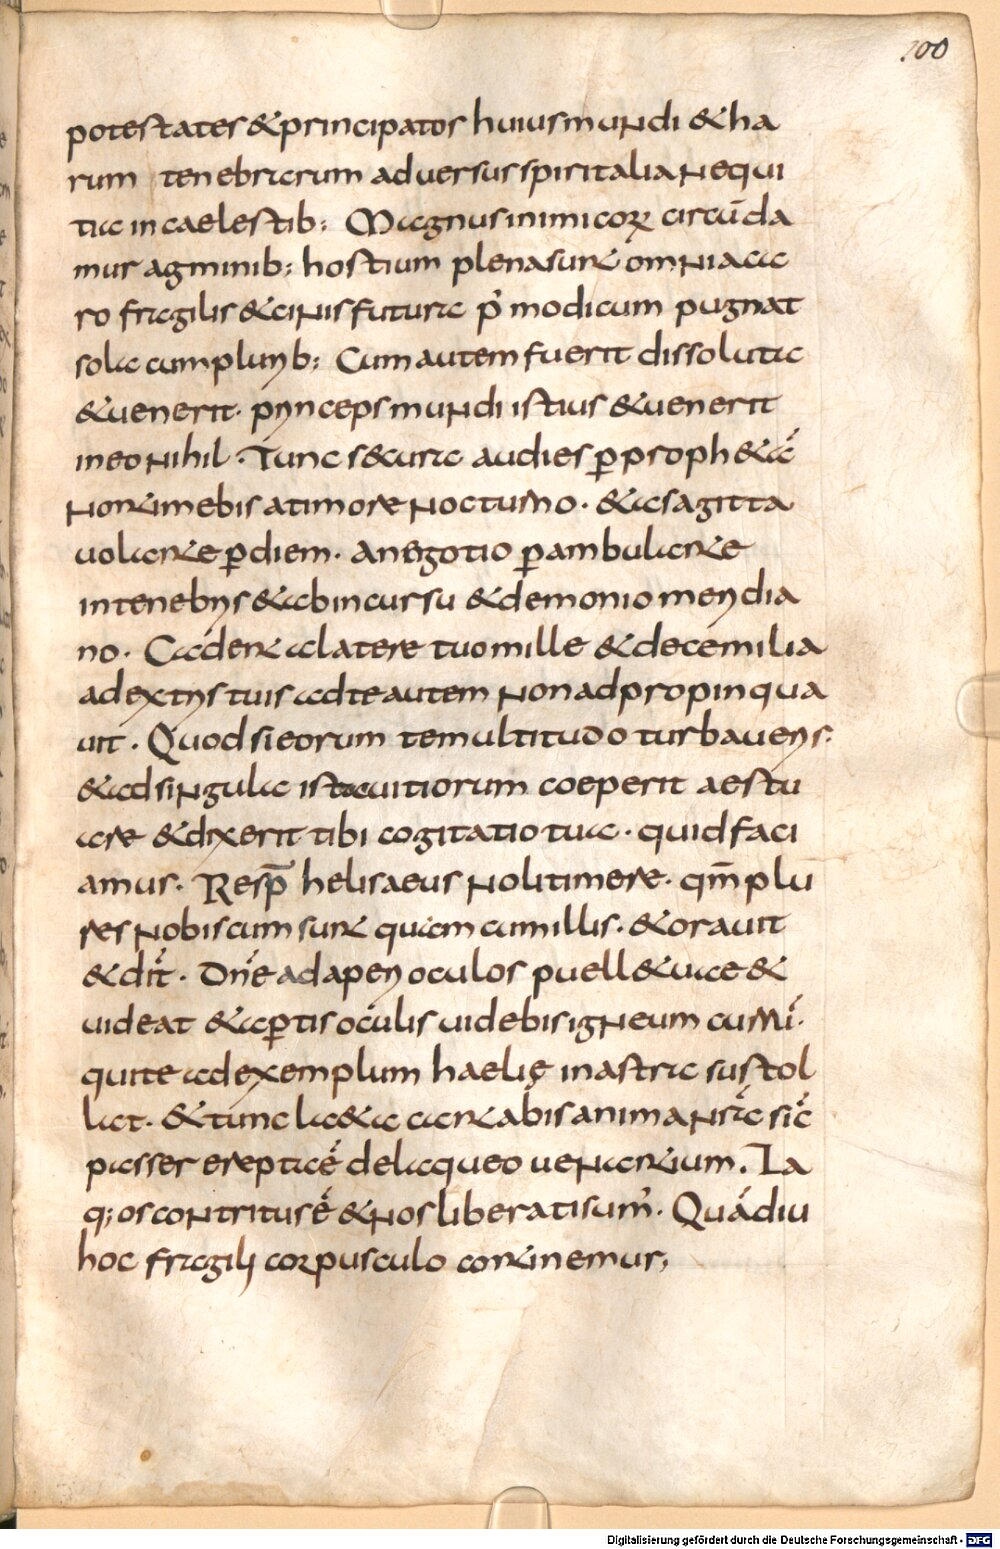 100
potestates & principatos huius mundi & ha
rum tenebrarum adversus spiritalia nequi
tiae in caelestib; Magnus inimicoꝝ circūda
mur agminib; hostium plena sunt omnia ca
ro fragilis & cinis futura p᾽ modicum pugnat
sola cum plurib; Cum autem fuerit dissoluta
& uenerit· princeps mundi istius & uenerit
in eo nihil· Tunc secura audies ꝑ proph&ā
Non timebis a timore nocturno· & a sagitta
uolante ꝑ diem· a negotio ꝑambulante
in tenebris & ab incursu & demonio meridia
no· Cadent a latere tuo mille & dece milia
a dextris tuis ad te autem non adpropinqua
uit· Quod si eorum te multitudo turbaueris·
& ad singula ista uitiorum coeperit aestu
are & dixerit tibi cogitatio tua· quid faci
amus· Resp̄ helisaeus noli timere· qm̄ plu
res nobiscum sunt quam cum illis· & orauit
& dix̄· Dn̄e adaperi oculos puellae tuae &
uideat & aꝑtis oculis uidebis igneum currū·
qui te ad exemplum haelię in astra sustol
lat· & tunc laeta cantabis anima nr̄a sic̄
passer erepta ē de laqueo uenantium. La
q;os contritus ē & nos liberati sum᾽· Quádiu
hoc fragili corpusculo continemur;
Digitalisierung gefördert durch die Deutsche Forschungsgemeinschaft - DFG